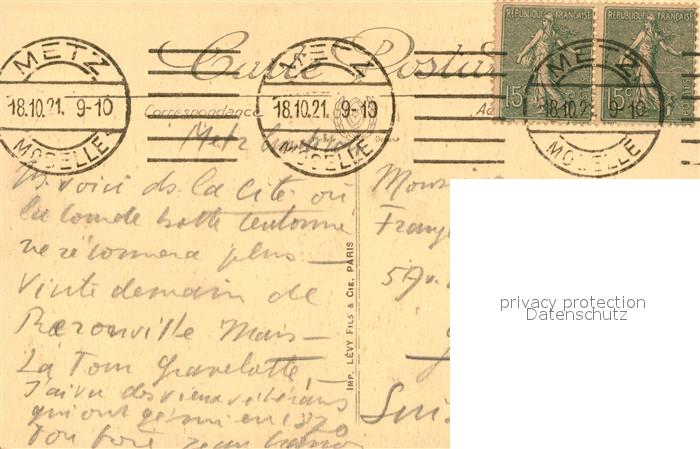 RÉPUBLIQUE FRANÇAISE RÉPUBLIQUE FRANÇAISE
15c 15c
METZ METZ METZ
18.10.21. 9-10 18.10.21. 9-10 18.10.21. 9-10
MOSELLE MOSELLE MOSELLE
Carte Postale
Correspondance
Metz
voici ds la cité où
la lourde botte teutonne
ne résonnera plus
Visite demain de
Rezonville Mars-
La Tour Gravelotte,
J'ai vu des vieux vétérans
qui ont gémi en 1870
Ton
IMP. LÉVY FILS & CIE, PARIS
5 Av.
privacy protection
Datenschutz